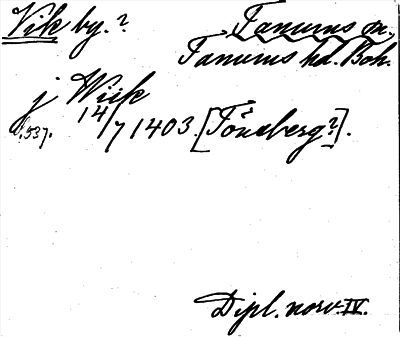 Vik by.? Tanums sn.,
Tanums hd. Boh.
j Wiik
14/7 1403. [Tönsberg?].
1537.
Dipl. norv. IV.